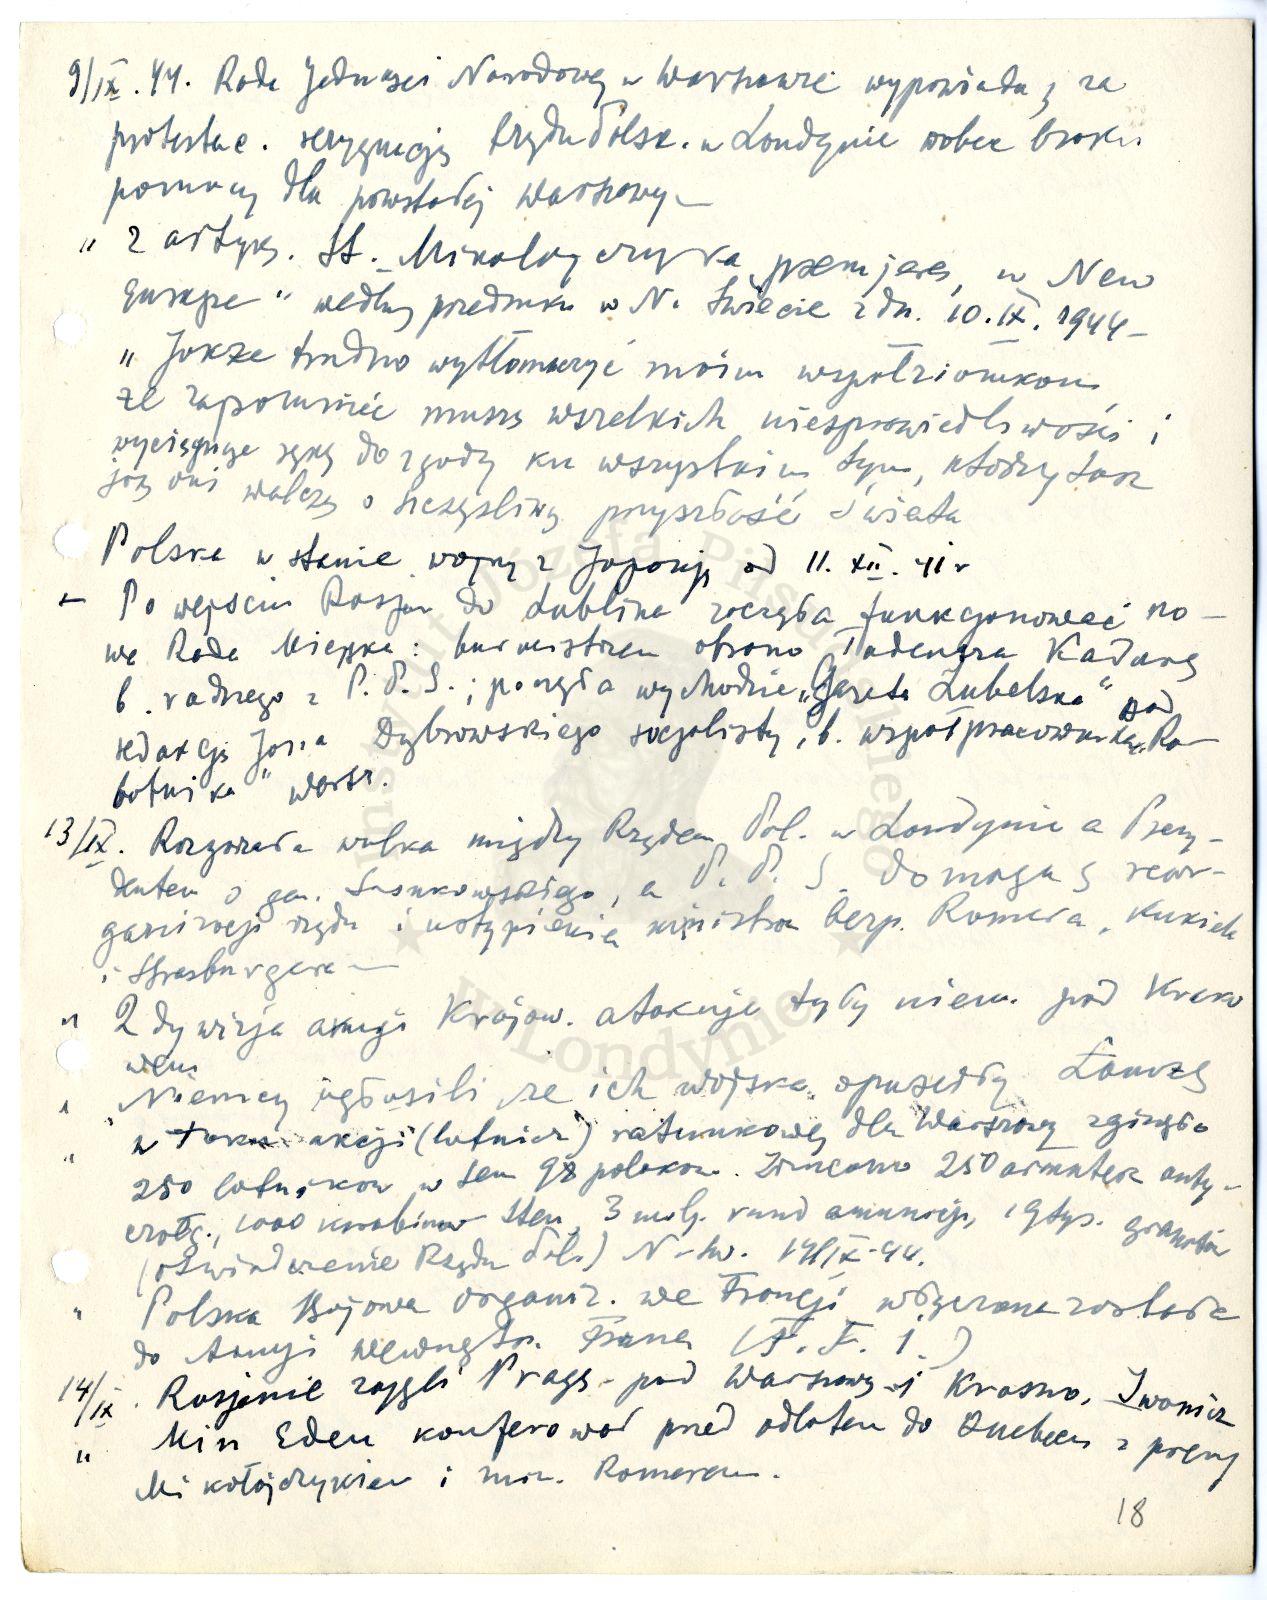 9/IX.44. Rada Jedności Narodowej w Warszawie wypowiada ę za
protestac. rezygnację Rządu Polsk. w Londynie wobec braku
pomocy dla powstałej Warszawy –
" z artyk. St. Mikołajczyka premjera, w New
Europe" według przedruku w N. Świecie z dn. 10.IX.1944 –
" Jakże trudno wytłomaczyć moim współziomkom
że zapomnieć muszą wszelkich niesprawiedliwości i
wyciągnąć rękę do zgody ku wszystkim tym, którzy tak
jak oni walczą o szczęśliwą przyszłość świata
Polska w stanie wojny z Japonją od 11.XII.41 r
– Po wejściu Rosjan do Lublina zaczęła funkcjonować no-
wa Rada Miejska: burmistrzem obrano Tadeusza Kadurę
b. radnego z P.P.S.; poczęła wychodzić „Gazeta Lubelska" pod
redakcją Jana Dąbrowskiego socjalisty, b. współpracownika „Ro-
botnika" warsz.
13/IX. Rozgorzała walka między Rządem Pol. w Londynie a Prezy-
dentem o gen. Sosnkowskiego, a P.P.S. domaga ę reor-
ganizacji rządu i ustąpienia ministra bezp. Romera, Kukiela
i Strasburgera –
" 2 dywizja armji Krajow. atakuje tyły niem. pod Krako
wem
" Niemcy ogłosili że ich wojska opuściły Łomżę
" w toku akcji (lotnicz) ratunkowej dla Warszawy zginęło
250 lotników w tem 98 polaków. Zrzucono 250 armatek anty-
czołg., 1000 karabinów Sten, 3 milj. rund amunicji, 19 tys. granatów
(oświadczenie Rządu Pol.) N. Sw. 14/IX-44.
" Polska Bojowa organiz. we Francji włączona została
do Armji Wewnętrz. Franc (F.F.I.)
14/IX. Rosjanie zajęli Pragę – pod Warszawą i Krosno, Iwonicz
" Min Eden konferował przed odlotem do Quebecu z premj
Mikołajczykiem i min. Romerem.
18
Instytut Józefa Piłsudskiego
w Londynie